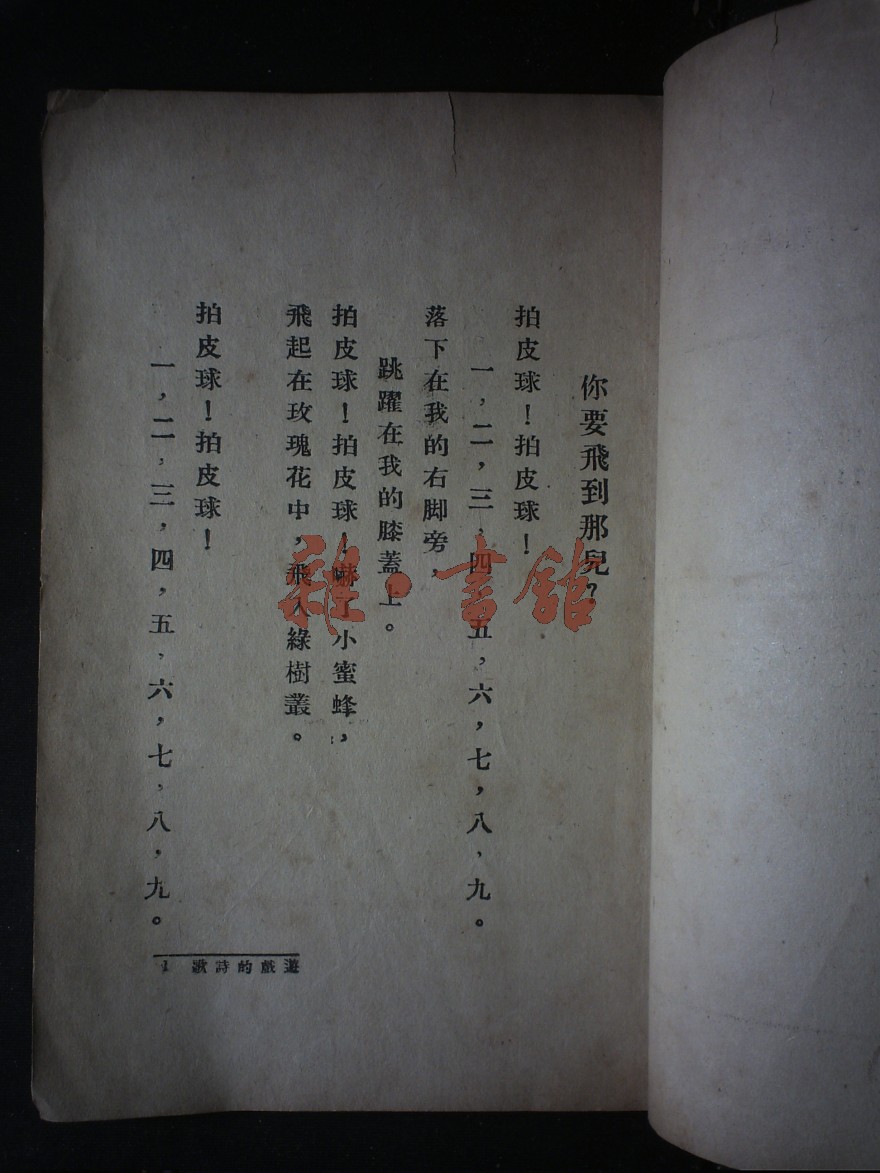 你要飛到那兒？
拍皮球！拍皮球！
一，二，三，四，五，六，七，八，九。
落下在我的右脚旁，
跳躍在我的膝蓋上。
拍皮球！拍皮球！嚇了小蜜蜂，
飛起在玫瑰花中，飛入綠樹叢。
拍皮球！拍皮球！
一，二，三，四，五，六，七，八，九。
遊戲的詩歌
雜·書館